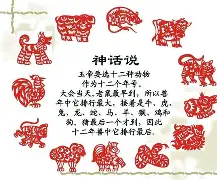 神话说
玉帝要选十二种动物
作为十二个年号，
大会当天，老鼠最早到，所以兽
年中它排行最大，接着是牛、虎、
兔、龙、蛇、马、羊、猴、鸡和
狗，猪最后一个才到，因此
十二年兽中它排行最后。